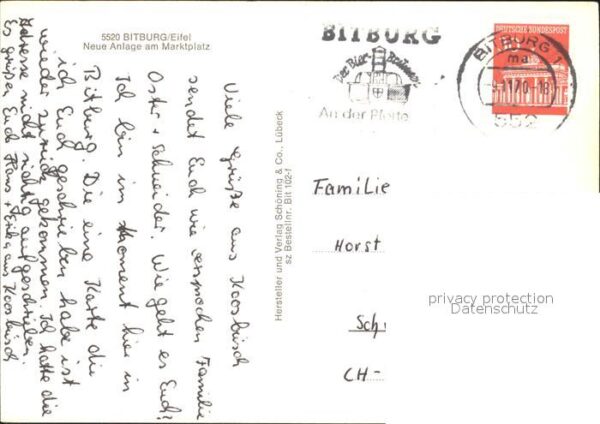 5520 BITBURG/Eifel
Neue Anlage am Marktplatz
BITBURG
An der Pforte
DEUTSCHE BUNDESPOST
BITBURG 1
ma
552
Hersteller und Verlag Schöning & Co., Lübeck
sz Bestellnr. Bit 102-f
Viele Grüße aus
sendet Euch wie versprochen Familie
Oster + Schneider. Wie geht es Euch?
Ich bin im Moment hier in
Bitburg. Die eine Karte die
ich Euch geschrieben habe ist
wieder zurück gekommen. Ich hatte die
Adresse nicht richtig aufgeschrieben.
Es grüßen Euch Hans + Erika aus
Familie
Horst
CH-
privacy protection
Datenschutz